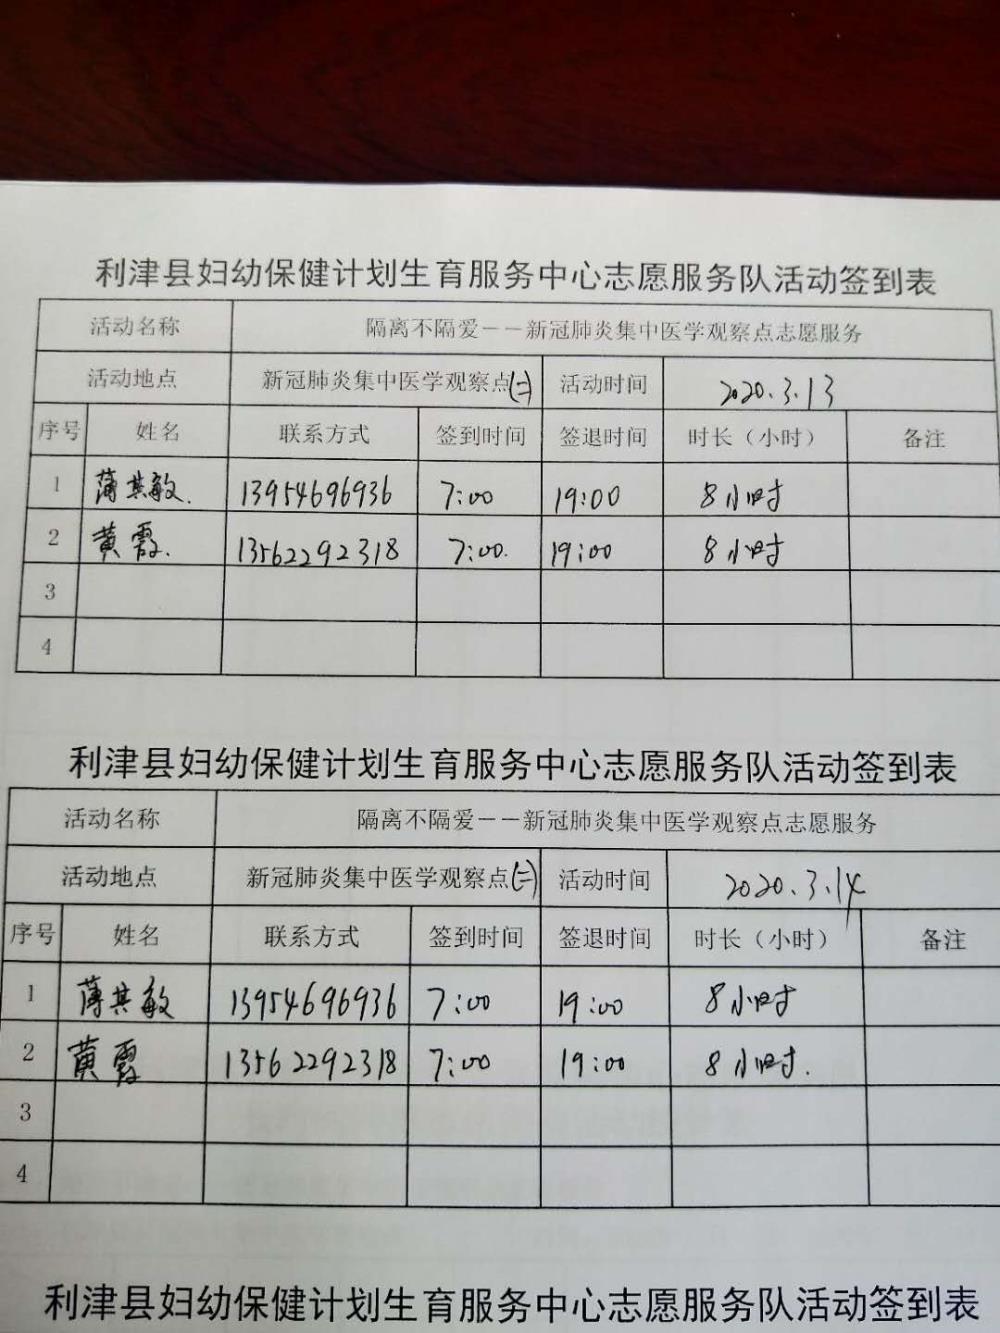 利津县妇幼保健计划生育服务中心志愿服务队活动签到表
活动名称 隔离不隔爱－－新冠肺炎集中医学观察点志愿服务
活动地点 新冠肺炎集中医学观察点(二) 活动时间 2020.3.13
序号 姓名 联系方式 签到时间 签退时间 时长（小时） 备注
1 薄其敏. 13954696936 7:00 19:00 8小时
2 黄霞. 13562292318 7:00. 19:00 8小时
3
4
利津县妇幼保健计划生育服务中心志愿服务队活动签到表
活动名称 隔离不隔爱－－新冠肺炎集中医学观察点志愿服务
活动地点 新冠肺炎集中医学观察点(二) 活动时间 2020.3.14
序号 姓名 联系方式 签到时间 签退时间 时长（小时） 备注
1 薄其敏 13954696936 7:00 19:00 8小时
2 黄霞 13562292318 7:00 19:00 8小时.
3
4
利津县妇幼保健计划生育服务中心志愿服务队活动签到表